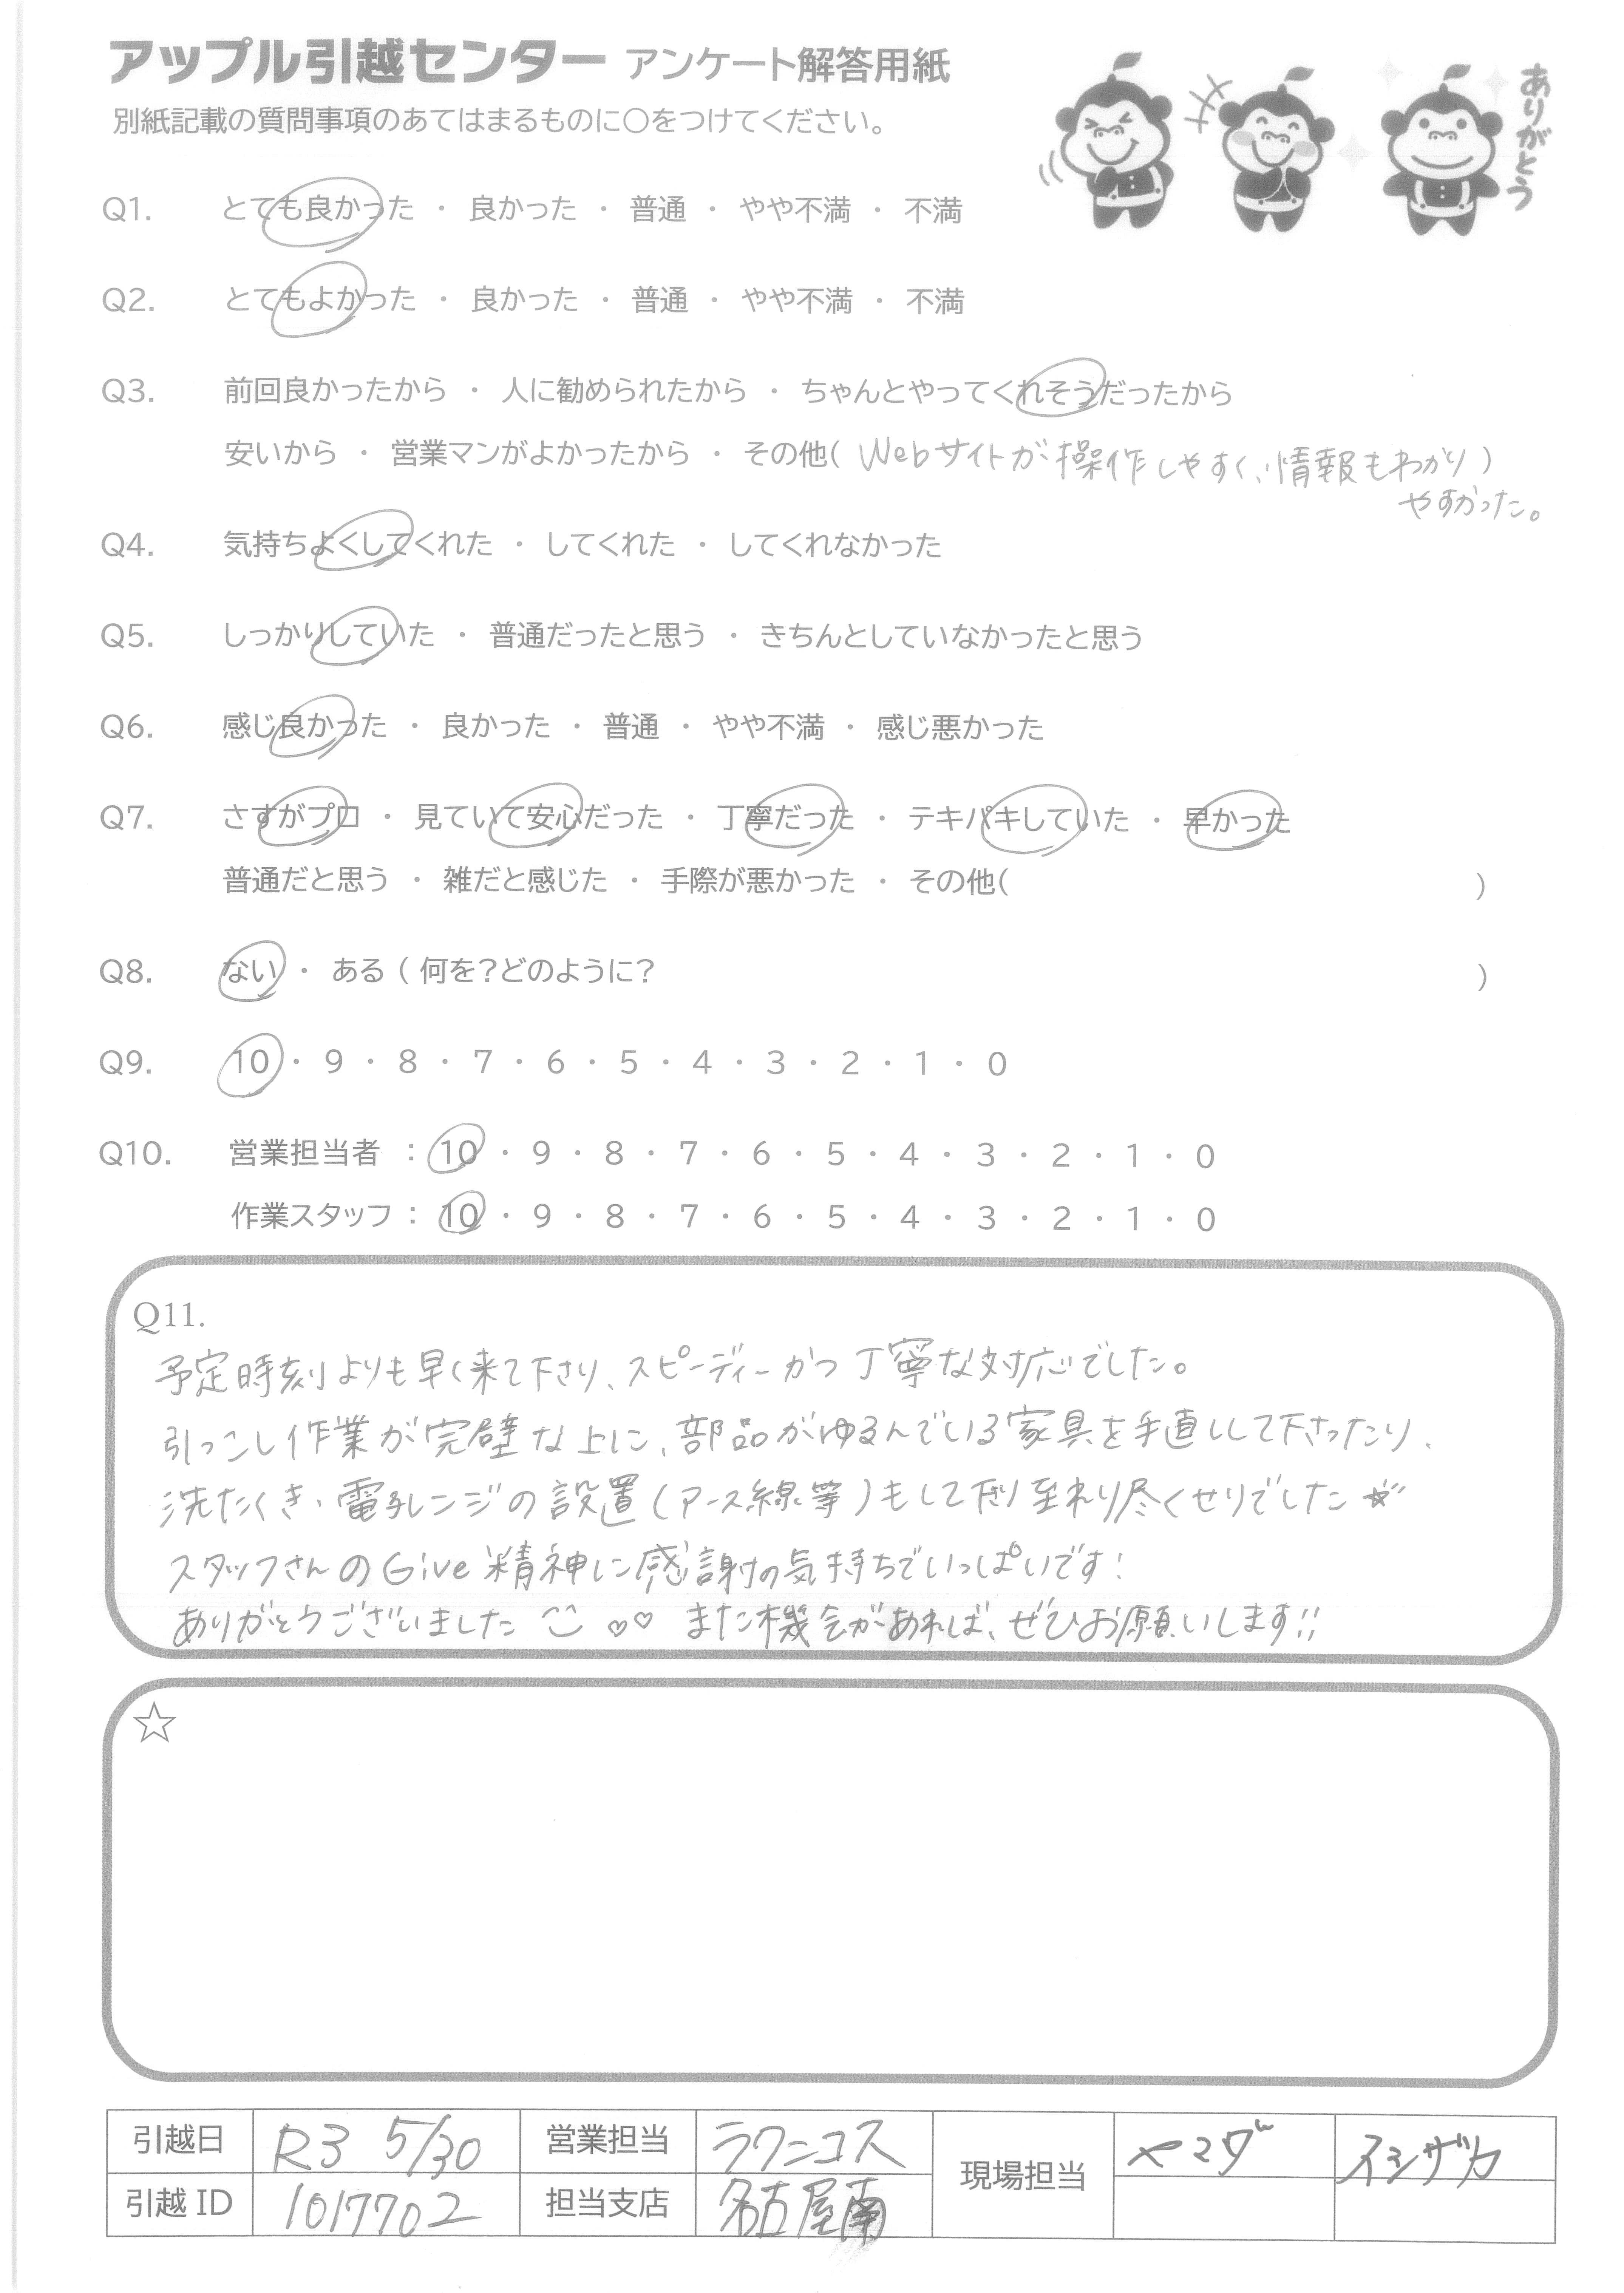 アップル引越センター アンケート解答用紙
別紙記載の質問事項のあてはまるものに○をつけてください。
ありがとう
Q1. とても良かった ・ 良かった ・ 普通 ・ やや不満 ・ 不満
Q2. とてもよかった ・ 良かった ・ 普通 ・ やや不満 ・ 不満
Q3. 前回良かったから ・ 人に勧められたから ・ ちゃんとやってくれそうだったから
安いから ・ 営業マンがよかったから ・ その他( Webサイトが操作しやすく、情報もわかり )
やすかった。
Q4. 気持ちよくしてくれた ・ してくれた ・ してくれなかった
Q5. しっかりしていた ・ 普通だったと思う ・ きちんとしていなかったと思う
Q6. 感じ良かった ・ 良かった ・ 普通 ・ やや不満 ・ 感じ悪かった
Q7. さすがプロ ・ 見ていて安心だった ・ 丁寧だった ・ テキパキしていた ・ 早かった
普通だと思う ・ 雑だと感じた ・ 手際が悪かった ・ その他( )
Q8. ない ・ ある ( 何を?どのように? )
Q9. 10 ・ 9 ・ 8 ・ 7 ・ 6 ・ 5 ・ 4 ・ 3 ・ 2 ・ 1 ・ 0
Q10. 営業担当者 : 10 ・ 9 ・ 8 ・ 7 ・ 6 ・ 5 ・ 4 ・ 3 ・ 2 ・ 1 ・ 0
作業スタッフ : 10 ・ 9 ・ 8 ・ 7 ・ 6 ・ 5 ・ 4 ・ 3 ・ 2 ・ 1 ・ 0
Q11.
予定時刻よりも早く来て下さり、スピーディーかつ丁寧な対応でした。
引っこし作業が完璧な上に、部品がゆるんでいる家具を手直しして下さったり、
洗たくき・電子レンジの設置(アース線等)もして下さり至れり尽くせりでした☆
スタッフさんのGive精神に感謝の気持ちでいっぱいです!
ありがとうございました ♡♡ また機会があれば、ぜひお願いします!!
☆
引越日 R3 5/30 営業担当 ラクニコス 現場担当 ヤマダ イシザカ
引越ID 1017702 担当支店 名古屋南